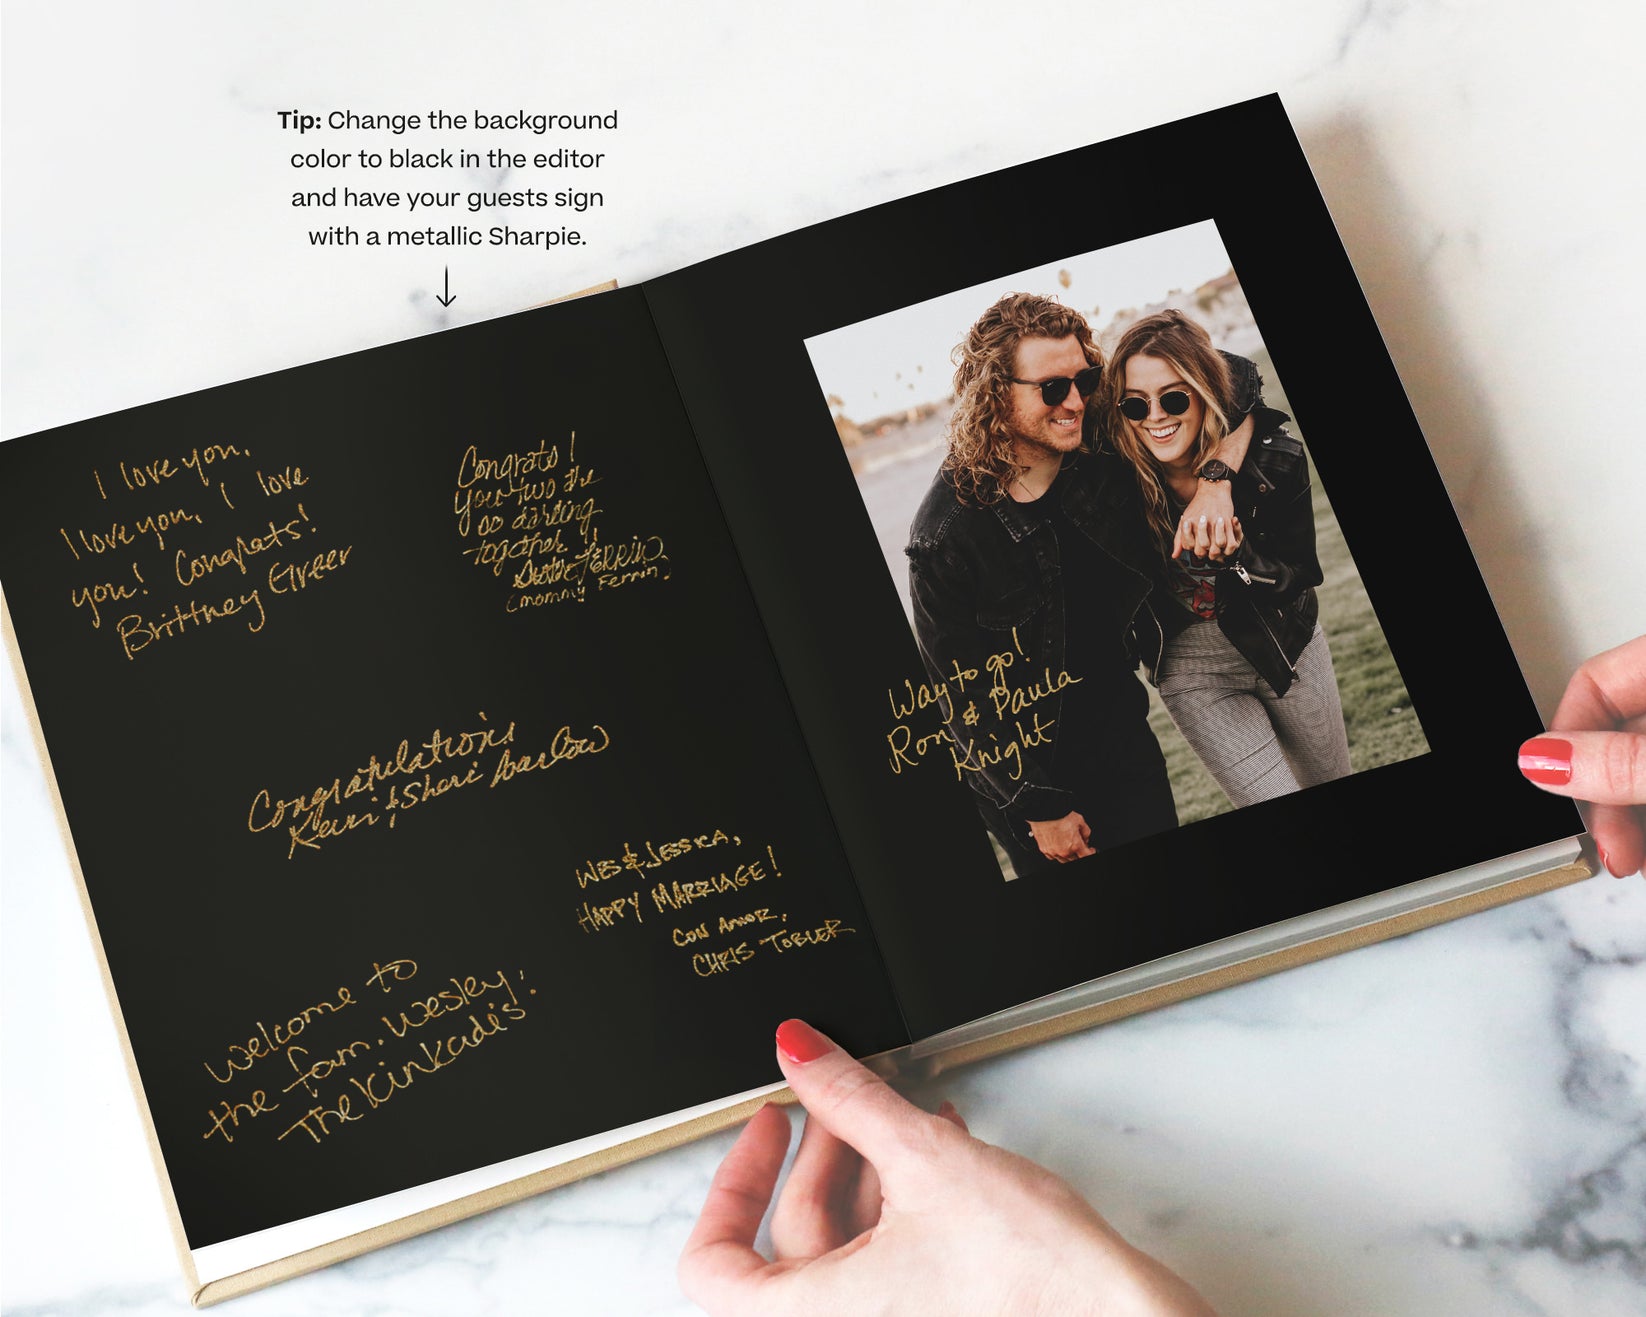 Tip: Change the background
color to black in the editor
and have your guests sign
with a metallic Sharpie.
I love you,
I love you, I love
you! Congrats!
Brittney Greer
Congrats!
You two are
so darling
together!
Ferrin
(mommy Ferrin)
Congratulations
Kevin & Sheri Barlow
WES & JESSICA,
HAPPY MARRIAGE!
CON AMOR,
CHRIS TOBLER
Welcome to
the fam. Wesley!
The Kinkade's
Way to go!
Ron & Paula
Knight